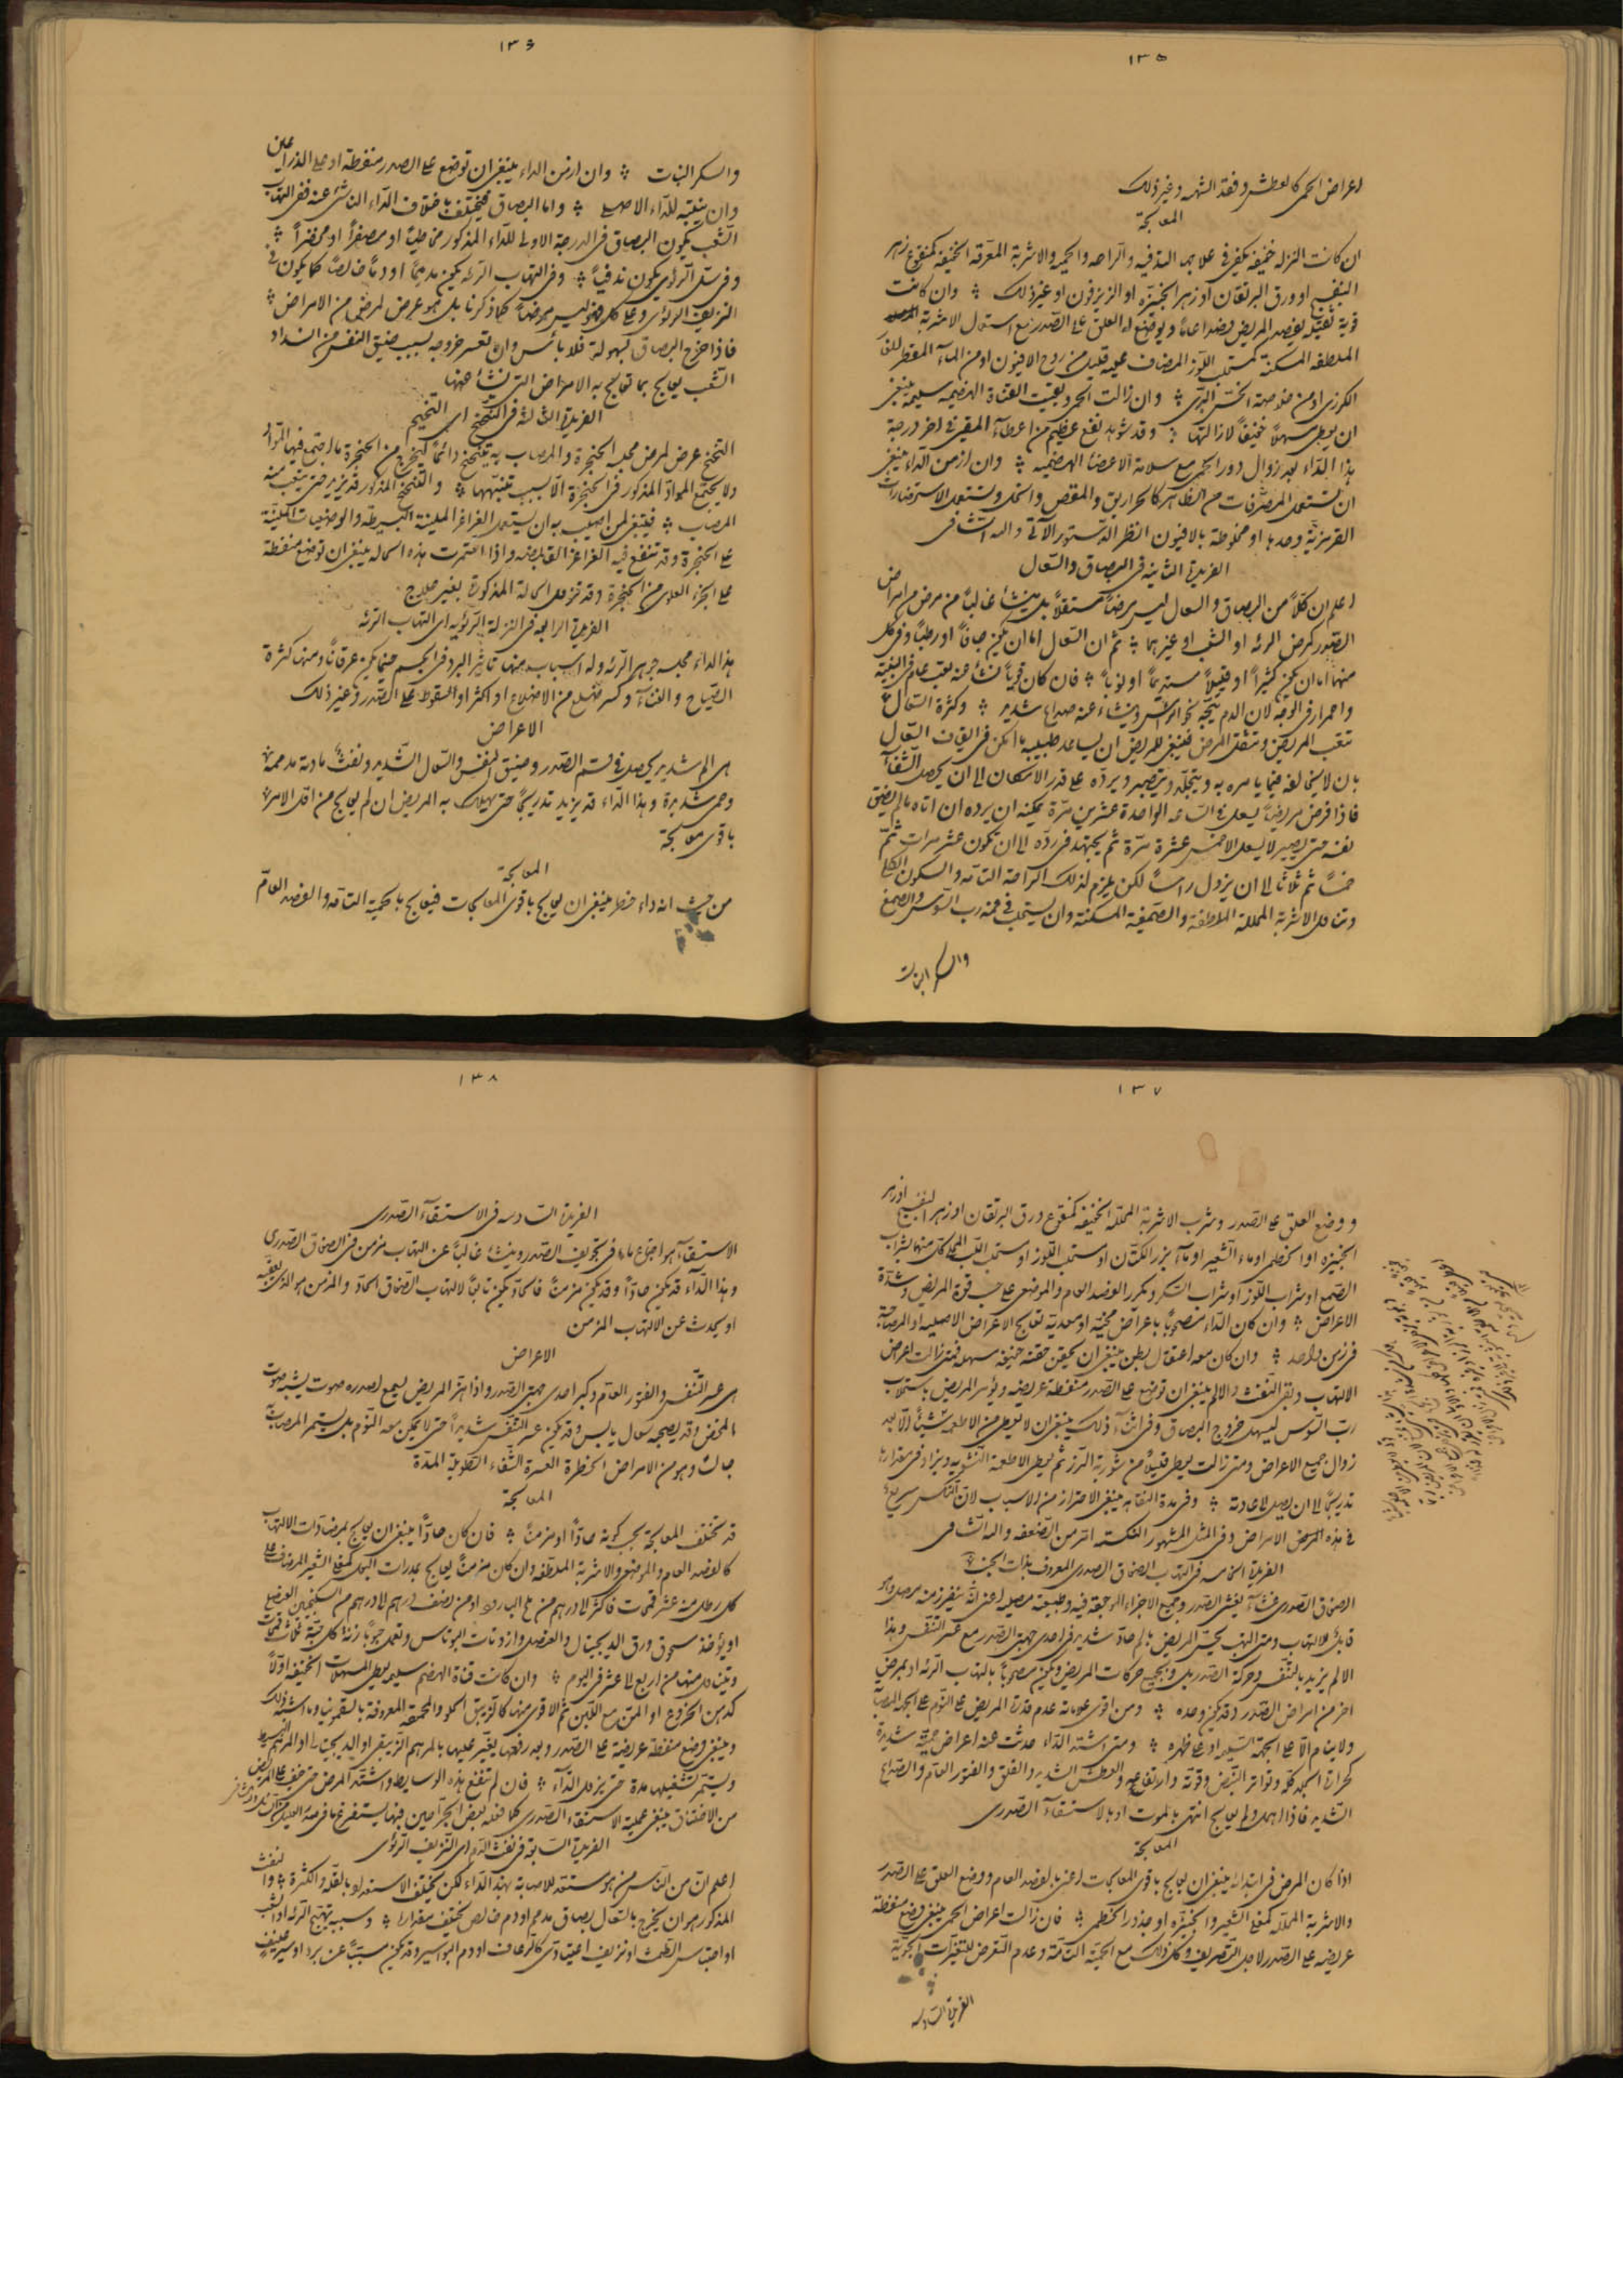 ١٣٥
اعراض الحمى كالعطش وفقد الشهيه وغير ذلك
المعالجة
ان كانت النزله خفيفه يكفى فى علاجها التدفيه والراحه والحميه والاشربة المعرقه الخفيفه كمنقوع زهر
البنفسج او ورق البرتقان او زهر الخبيزه او الزيزفون او غير ذلك ؞ وان كانت
قوية ثقيله يفصد المريض فصدا عاما ويوضع له العلق على الصدر مع استعمال الاشربة
الملطفه المسكنة كمستحلب اللوز المضاف عليه قليل من روح الافيون او من الماء المقطر للغار
الكرزى او من خلاصة الخس البرى ؞ وان زالت الحمى وبقيت القناة الهضميه سليمه ينبغى
ان يعطى مسهلا خفيفا لازالتها ؞ وقد شوهد نفع عظيم من اعطاء المقيئ فى اخر درجة
هذا الداء بعد زوال دور الحمى مع سلامة الاعضا الهضميه ؞ وان ازمن الداء ينبغى
ان تستعمل المصرفات من الظاهر كالحراريق والمقص والخل وتستعمل الاستحضارات
القرمزية وحدها او مخلوطة بالافيون انظر الدستور الآتى والله الشافى
الفريدة الثانيه فى البصاق والسعال
اعلم ان كلا من البصاق والسعال ليس مرضا مستقلا بل ينشأ غالبا من مرض من امراض
الصدر كمرض الرئه او الشعب او غيرهما ؞ ثم ان السعال اما ان يكون جافا او رطبا وفى كل
منهما اما ان يكون كثيرا او قليلا مستديما او نوبا ؞ فان كان قويا نشأ عنه تعب عام فى البنية
واحمرار فى الوجه لان الدم يتجه نحو الراس وينشاء عنه صداع شديد ؞ وكثرة السعال
تتعب المريض وتثقل المرض فينبغى للمريض ان يساعد طبيبه ما امكن فى ايقاف السعال
بان لا يخالفه فيما يامره به ويتجلد ويتصبر ويرده على قدر الامكان الى ان يحصل الشفآء
فاذا فرض مريضا يسعل فى الساعه الواحدة عشرين مرة يمكنه ان يرده ان اتاه ما لم يضق
نفسه حتى يصير لا يسعل الا خمس عشرة مرة ثم يجتهد فى رده الى ان تكون عشر مرات ثم
خمسا ثم ثلاثا الى ان يزول راسا لكن يلزم لذلك الراحة التامه والسكون الكلى
وتناول الاشربة المحلله الملاطفه والصمغية المسكنة وان يستحلب فى فمه رب السوس والصمغ
والسكر النبات
١٣٦
والسكر النبات ؞ وان ازمن الداء ينبغى ان توضع على الصدر منفطة او على الذراعين
وان ينتبه للداء الاصلى ؞ واما البصاق فيختلف باختلاف الداء الناشى عنه ففى التهاب
الشعب يكون البصاق فى الدرجة الاولى للداء المذكور مخاطيا او مصفرا او مخضرا ؞
وفى سل الرئوى يكون ندفيا ؞ وفى التهاب الرئه يكون مدمما او دما خالصا كما يكون فى
النزيف الرئوى وعلى كل فهو ليس مرضا كما ذكرنا بل هو عرض لمرض من الامراض ؞
فاذا خرج البصاق بسهولة فلا بائس وان تعسر خروجه بسبب ضيق النفس من انسداد
الشعب يعالج بما تعالج به الامراض التى ينشأ عنها
الفريدة الثالثة فى التنحنح اى التنخيم
التنحنح عرض لمرض محله الحنجرة والمصاب به يتنحنح دائما ليخرج من الحنجرة ما اجتمع فيها من المواد
ولا يجتمع المواد المذكور فى الحنجرة الا بسبب تنبيهها ؞ والتنحنح المذكور قد يزيد حتى يتعب منه
المصاب ؞ فينبغى لمن اصيب به ان يستعمل الغراغر الملينة البسيطه والوضعيات الملينة
على الحنجرة وقد تنفع فيه الغراغر القابضه واذا استمرت هذه الحاله ينبغى ان توضع منفطة
على الجزء العلوى من الحنجرة وقد تزول الحالة المذكورة بغير علاج
الفريدة الرابعه فى النزلة الرئويه اى التهاب الرئه
هذا الداء محله جوهر الرئه وله اسباب منها تاثير البرد فى الجسم حينما يكون عرقانا ومنها كثرة
الصياح والغناء وكسر ضلع من الاضلاع او اكثر او السقوط على الصدر وغير ذلك
الاعراض
هى الم شديد يحصل فى قسم الصدر وضيق النفس والسعال الشديد ونفث مادة مدممة
وحمى شديدة وهذا الداء قد يزيد تدريجا حتى يهلك به المريض ان لم يعالج من اول الامر
باقوى معالجة
المعالجة
من حيث انه داء خطر ينبغى ان يعالج باقوى المعالجات فيعالج بالحمية التامه والفصد العام
١٣٧
ووضع العلق على الصدر وشرب الاشربة المحلله الخفيفه كمنقوع ورق البرتقان او زهر البنفسج او زهر
الخبيزه او الخطمى او ماء الشعير او مآء بزر الكتان او مستحلب اللوز او مستحلب اللب المحلى كل منها بشراب
الصمغ او شراب اللوز او شراب السكر ويكرر الفصد العام والموضعى على حسب قوة المريض وشدة
الاعراض ؞ وان كان الداء مصحوبا باعراض مخية او معدية تعالج الاعراض الاصليه او المصاحبة
فى زمن واحد ؞ وان كان معه اعتقال بطن ينبغى ان يحقن حقنه خفيفه مسهله فمتى زالت اعراض
الالتهاب وبقى النفث والالم ينبغى ان توضع على الصدر منفطة عريضه ويؤمر المريض باستحلاب
رب السوس ليسهل خروج البصاق وفى اثناء ذلك ينبغى ان لا يعطى من الاطعمه شيئا الا بعد
زوال جميع الاعراض ومتى زالت يعطى قليلا من شوربة الرز ثم يعطى الاطعمة النشويه ويزاد فى مقدارها
تدريجا الى ان يصل لاعادته ؞ وفى مدة النقاهه ينبغى الاحتراز من الاسباب لان النكس سريع
فى هذه المرض الامراض وفى المثل المشهور النكسه اشر من الضعفه والله الشافى
الفريدة الخامسه فى التهاب الصفاق الصدرى المعروف بذات الجنب
الصفاق الصدرى غشآء يغشى الصدر وجميع الاجزاء الموجوده فيه وطبيعته مصليه اعنى انه يفرز منه مصل وهو
قابل للالتهاب ومتى التهب يحس المريض بالم حاد شديد فى احدى جهتى الصدر مع عسر التنفس وهذا
الالم يزيد بالتنفس وحركة الصدر بل وبجميع حركات المريض ويكون مصحوبا بالتهاب الرئه او بمرض
اخر من امراض الصدر وقد يكون وحده ؞ ومن اقوى علاماته عدم قدرة المريض على النوم على الجهة المصابة
ولا ينام الا على الجهة السليمه او على ظهره ؞ ومتى اشتد الداء حدثت منه اعراض حميه شديدة
كحرارة الجلد كله وتواتر النبض وقوته وارتفاعه والعطش الشديد والقلق والفتور العام والصداع
الشديد فاذا اهمل ولم يعالج انتهى بالموت او بالاستسقآء الصدرى
المعالجة
اذا كان المرض فى ابتدائه ينبغى ان يعالج باقوى المعالجات اعنى بالفصد العام ووضع العلق على الصدر
والاشربة المحلله كمغلى الشعير والخبيزه او جذور الخطمى ؞ فان زالت اعراض الحمى ينبغى وضع منفطة
عريضه على الصدر لاجل التصريف وكل ذلك مع الحمية التامة وعدم التعرض للتغيرات الجوية
الفريدة السادسه
١٣٨
الفريدة السادسه فى الاستسقآء الصدرى
الاستسقآء هو اجتماع ماء فى تجويف الصدر وينشأ غالبا عن التهاب مزمن فى الصفاق الصدرى
وهذا الداء قد يكون حادا وقد يكون مزمنا فالحاد يكون تابعا لالتهاب الصفاق الحاد والمزمن هو الذى يعقبه
او يحدث عن الالتهاب المزمن
الاعراض
هى عسر التنفس والفتور العام وكبر احدى جهتى الصدر واذا اهتز المريض يسمع لصدره صوت يشبه صوت
المخض وقد يصحبه سعال يابس وقد يكون عسر التنفس شديدا حتى لا يمكن معه النوم بل يستمر المصاب
جالسا وهو من الامراض الخطرة العسرة الشفاء الطويلة المدة
المعالجة
قد تختلف المعالجة بحسب كونه حادا او مزمنا ؞ فان كان حادا ينبغى ان يعالج بمضادات الالتهاب
كالفصد العام والموضعى والاشربة الملطفه وان كان مزمنا يعالج بمدرات البول كمغلى الشعير المضاف على
كل رطل منه عشر قمحات فاكثر الى درهم من ملح البارود او من نصف درهم الى درهم من السكنجبين العنصلى
او يؤخذ مسحوق ورق الديجيتال والعنصل وازوتات البوتاس وتعمل حبوبا زنة كل حبة ثلاث قمحات
ويتناول منها من اربع الى عشر فى اليوم ؞ وان كانت قناة الهضم سليمه يعطى المسهلات الخفيفه اولا
كدهن الخروع او المن مع اللبن ثم الاقوى منها كالزيبق الحلو والمحمودة المعروفة بالسقمونيا وما اشبه ذلك
وينبغى وضع منفطة عريضة على الصدر وبعد رفعها يغير عليها بالمرهم الزيبقى او الديجيتال او المرهم البسيط
ويستمر تشغيلها مدة حتى يزول الدآء ؞ فان لم تنفع هذه الوسايط واشتد المرض حتى خيف على المريض
من الاختناق ينبغى عملية الاستسقاء الصدرى كما فعله بعض الجراحين فيها يستفرغ ما فى صدر العليل
الفريدة السابعة فى نفث الدم اى النزيف الرئوى
اعلم ان من الناس من هو مستعد للاصابة بهذا الداء لكن يختلف الاستعداد بالقلة والكثرة ؞ والنفث
المذكور هو ان يخرج بالسعال بصاق مدمم او دم خالص يختلف مقداره ؞ وسببه تهيج الرئه او الشعب
او احتباس الطمث او نزيف اعتيادى كالرعاف او دم البواسير وقد يكون مسببا عن برد او سير عنيف